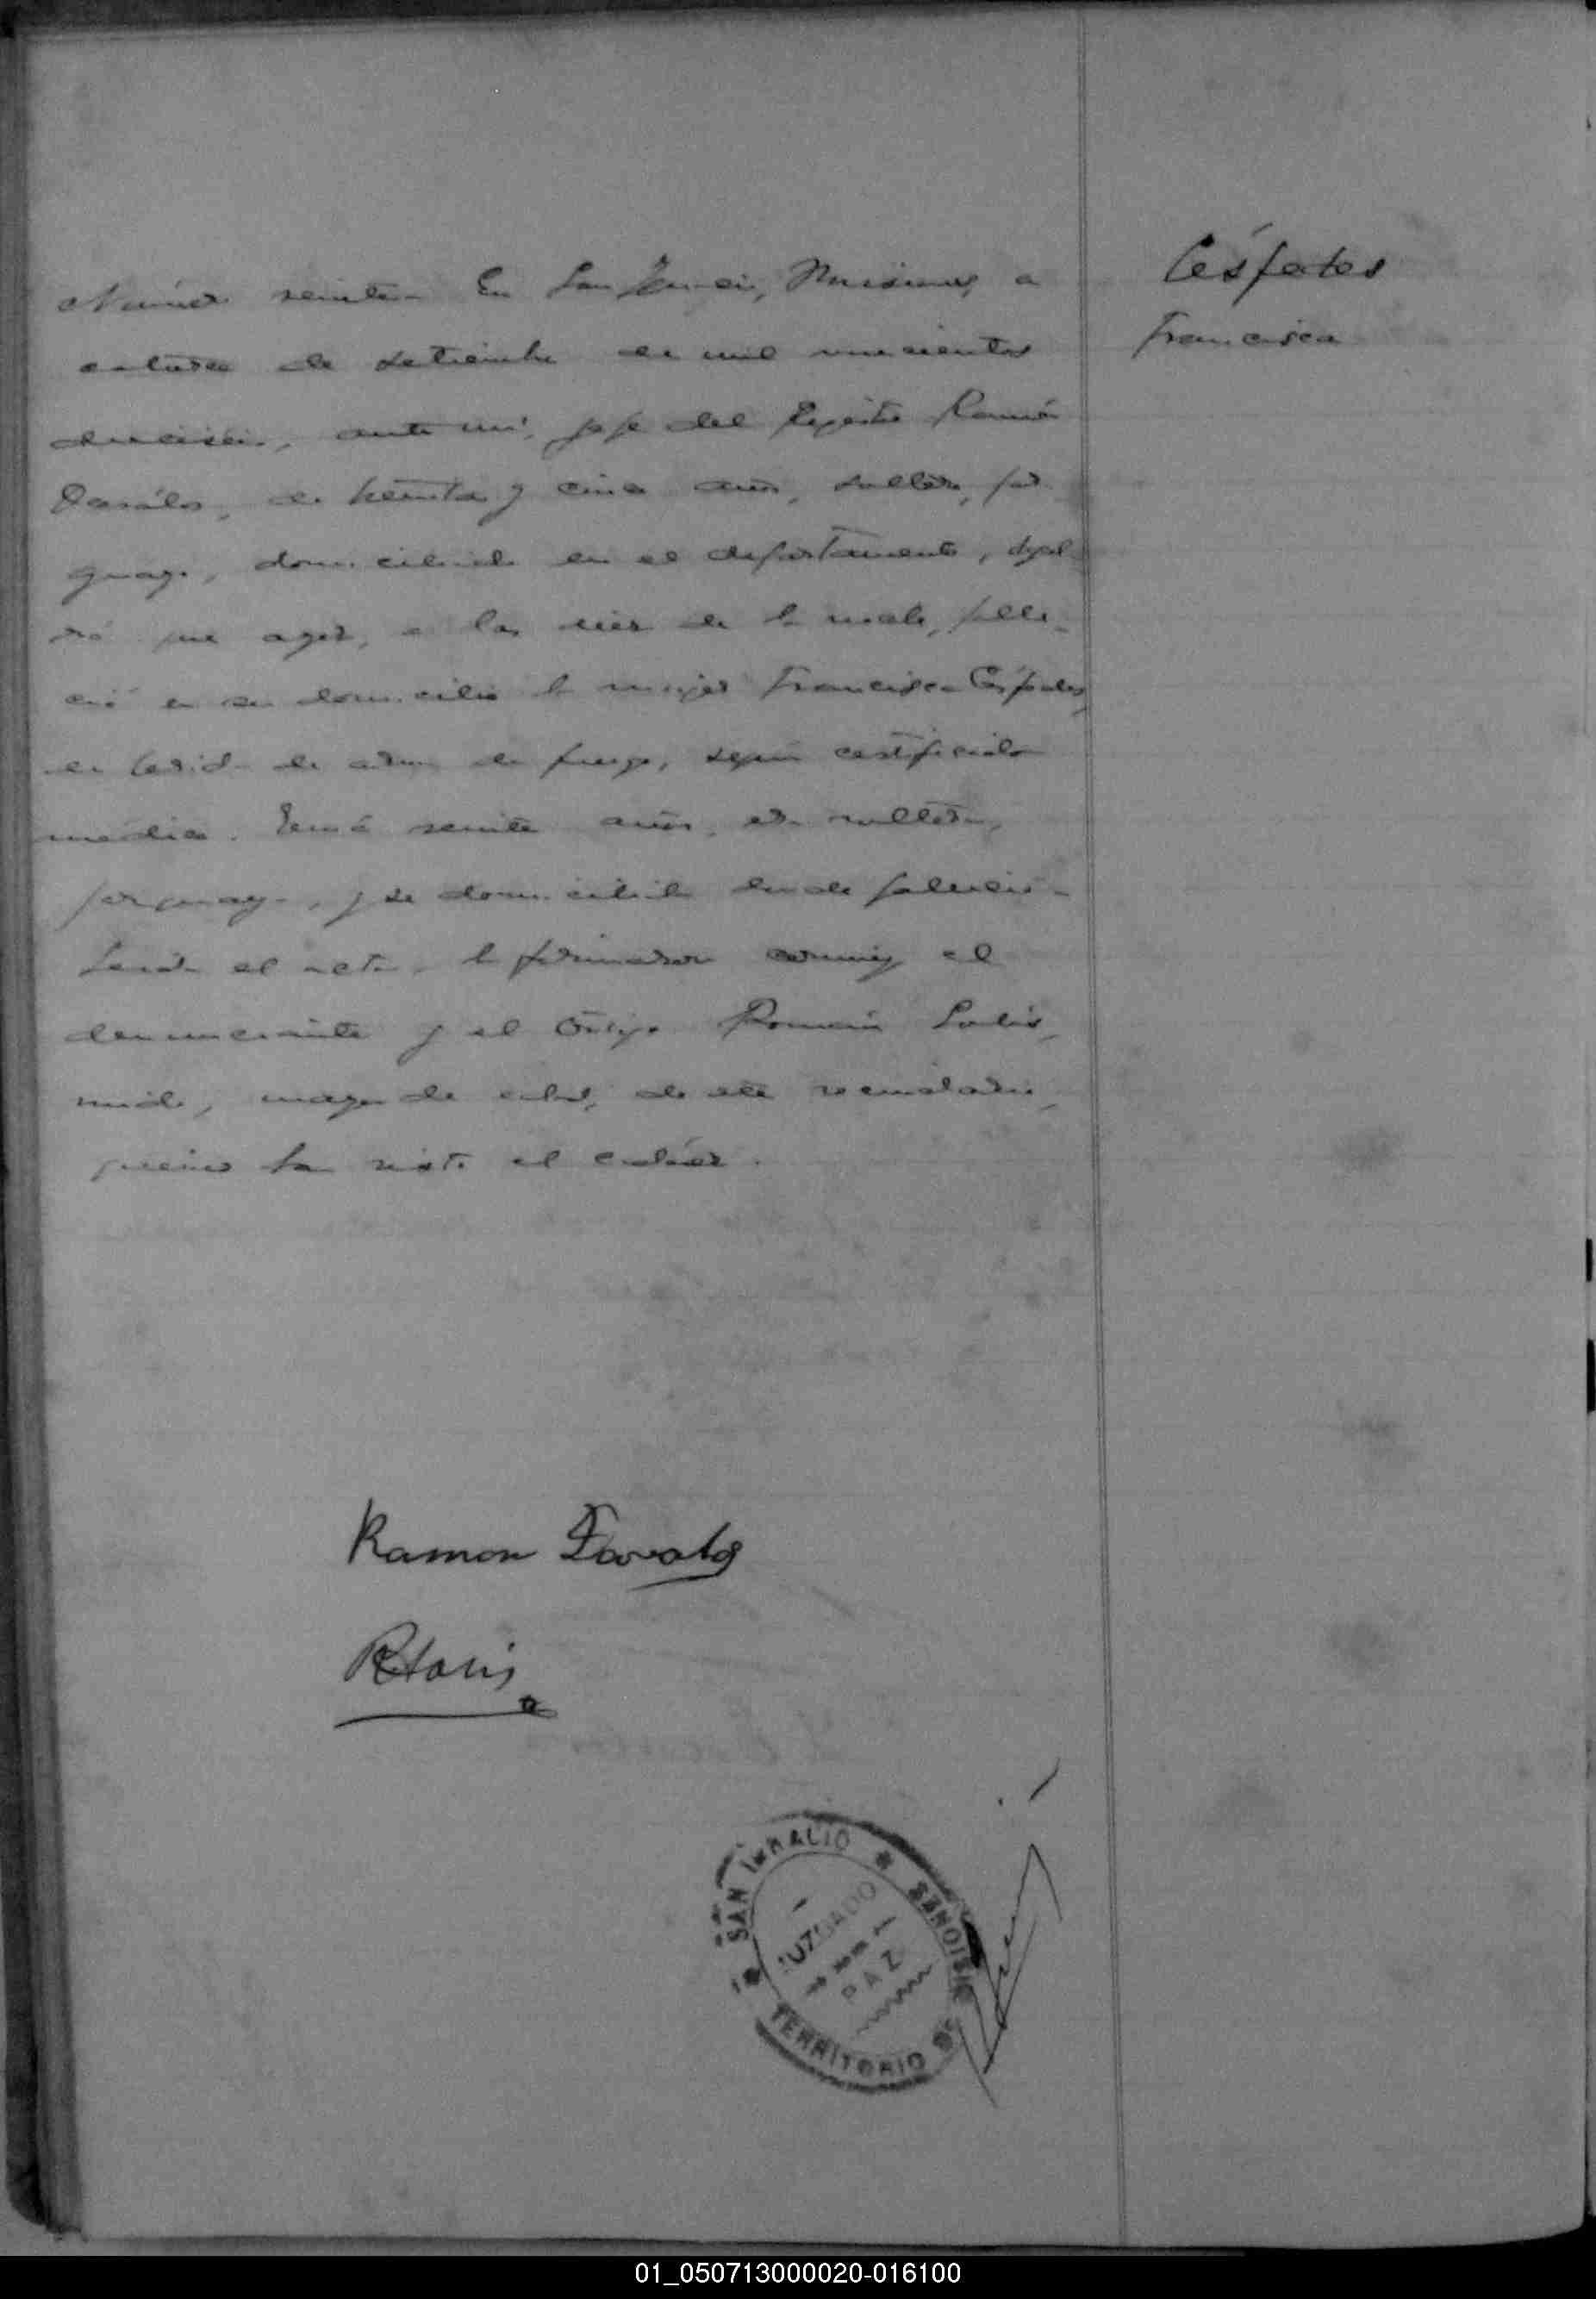 Céspedes
Francisca
Número veinte. En San Ignacio, Misiones, a
catorce de setiembre de mil novecientos
dieciséis, ante mí, jefe del Registro Ramón
Dávalos, de treinta y cinco años, soltero, par
guayo, domiciliado en el departamento, decl
ró que ayer, a las de la fall
ció en su domicilio la mujer Francisca Céspedes,
de herida de arma de fuego, según certificado
médico. Tenía veinte años, era soltera,
paraguaya, y se domiciliaba donde falleció.
Leída el acta, la firmaron conmigo el
denunciante y el testigo Román
mayor de edad, de este vecindario,
quienes han visto el cadáver.
Ramon Davalos
SAN IGNACIO * MISIONES
JUZGADO
PAZ
TERRITORIO DE
01_050713000020-016100